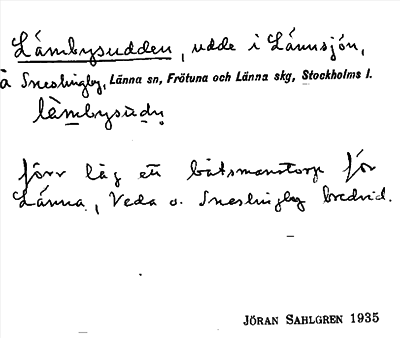 Lämbysudden, udde i Lännsjön,
å Sneslingby, Länna sn, Frötuna och Länna skg, Stockholms l.
lä̀mbysùdn
förr låg ett båtsmanstorp för
Länna, Veda o. Sneslingby bredvid.
JÖRAN SAHLGREN 1935